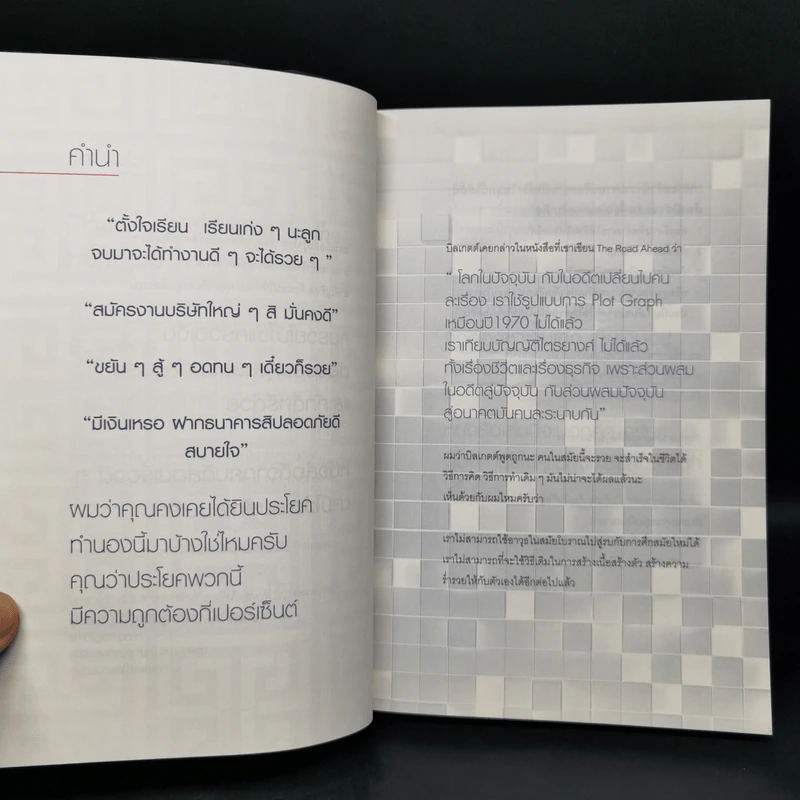 คำนำ
“ตั้งใจเรียน เรียนเก่ง ๆ นะลูก
จบมาจะได้ทำงานดี ๆ จะได้รวย ๆ ”
“สมัครงานบริษัทใหญ่ ๆ สิ มั่นคงดี”
“ขยัน ๆ สู้ ๆ อดทน ๆ เดี๋ยวก็รวย”
“มีเงินเหรอ ฝากธนาคารสิปลอดภัยดี
สบายใจ”
ผมว่าคุณคงเคยได้ยินประโยค
ทำนองนี้มาบ้างใช่ไหมครับ
คุณว่าประโยคพวกนี้
มีความถูกต้องกี่เปอร์เซ็นต์
บิลเกตต์เคยกล่าวในหนังสือที่เขาเขียน The Road Ahead ว่า
“ โลกในปัจจุบัน กับในอดีตเปลี่ยนไปคน
ละเรื่อง เราใช้รูปแบบการ Plot Graph
เหมือนปี1970 ไม่ได้แล้ว
เราเทียบบัญญัติไตรยางศ์ ไม่ได้แล้ว
ทั้งเรื่องชีวิตและเรื่องธุรกิจ เพราะส่วนผสม
ในอดีตสู่ปัจจุบัน กับส่วนผสมปัจจุบัน
สู่อนาคตมันคนละระนาบกัน”
ผมว่าบิลเกตต์พูดถูกนะ คนในสมัยนี้จะรวย จะสำเร็จในชีวิตได้
วิธีการคิด วิธีการทำเดิม ๆ มันไม่น่าจะได้ผลแล้วนะ
เห็นด้วยกับผมไหมครับว่า
เราไม่สามารถใช้อาวุธในสมัยโบราณไปสู้รบกับการศึกสมัยใหม่ได้
เราไม่สามารถที่จะใช้วิธีเดิมในการสร้างเนื้อสร้างตัว สร้างความ
ร่ำรวยให้กับตัวเองได้อีกต่อไปแล้ว